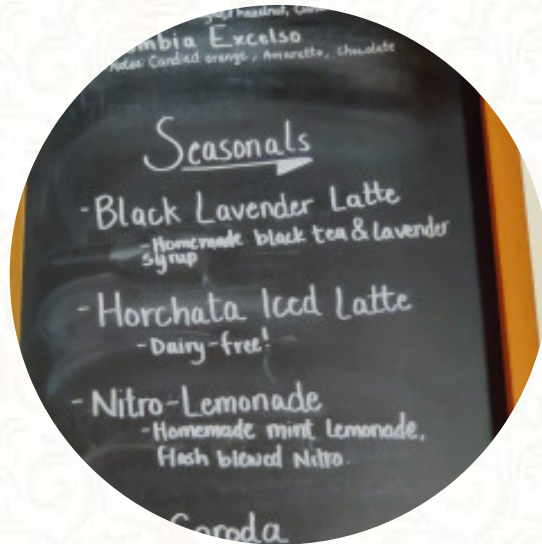 hazelnut,
mbia Excelso
Notes: Candied orange, Amaretto, Chocolate
Seasonals
-Black Lavender Latte
-Homemade black tea & lavender
syrup
-Horchata Iced Latte
-Dairy-free!
-Nitro-Lemonade
-Homemade mint lemonade,
flash blewed Nitro.